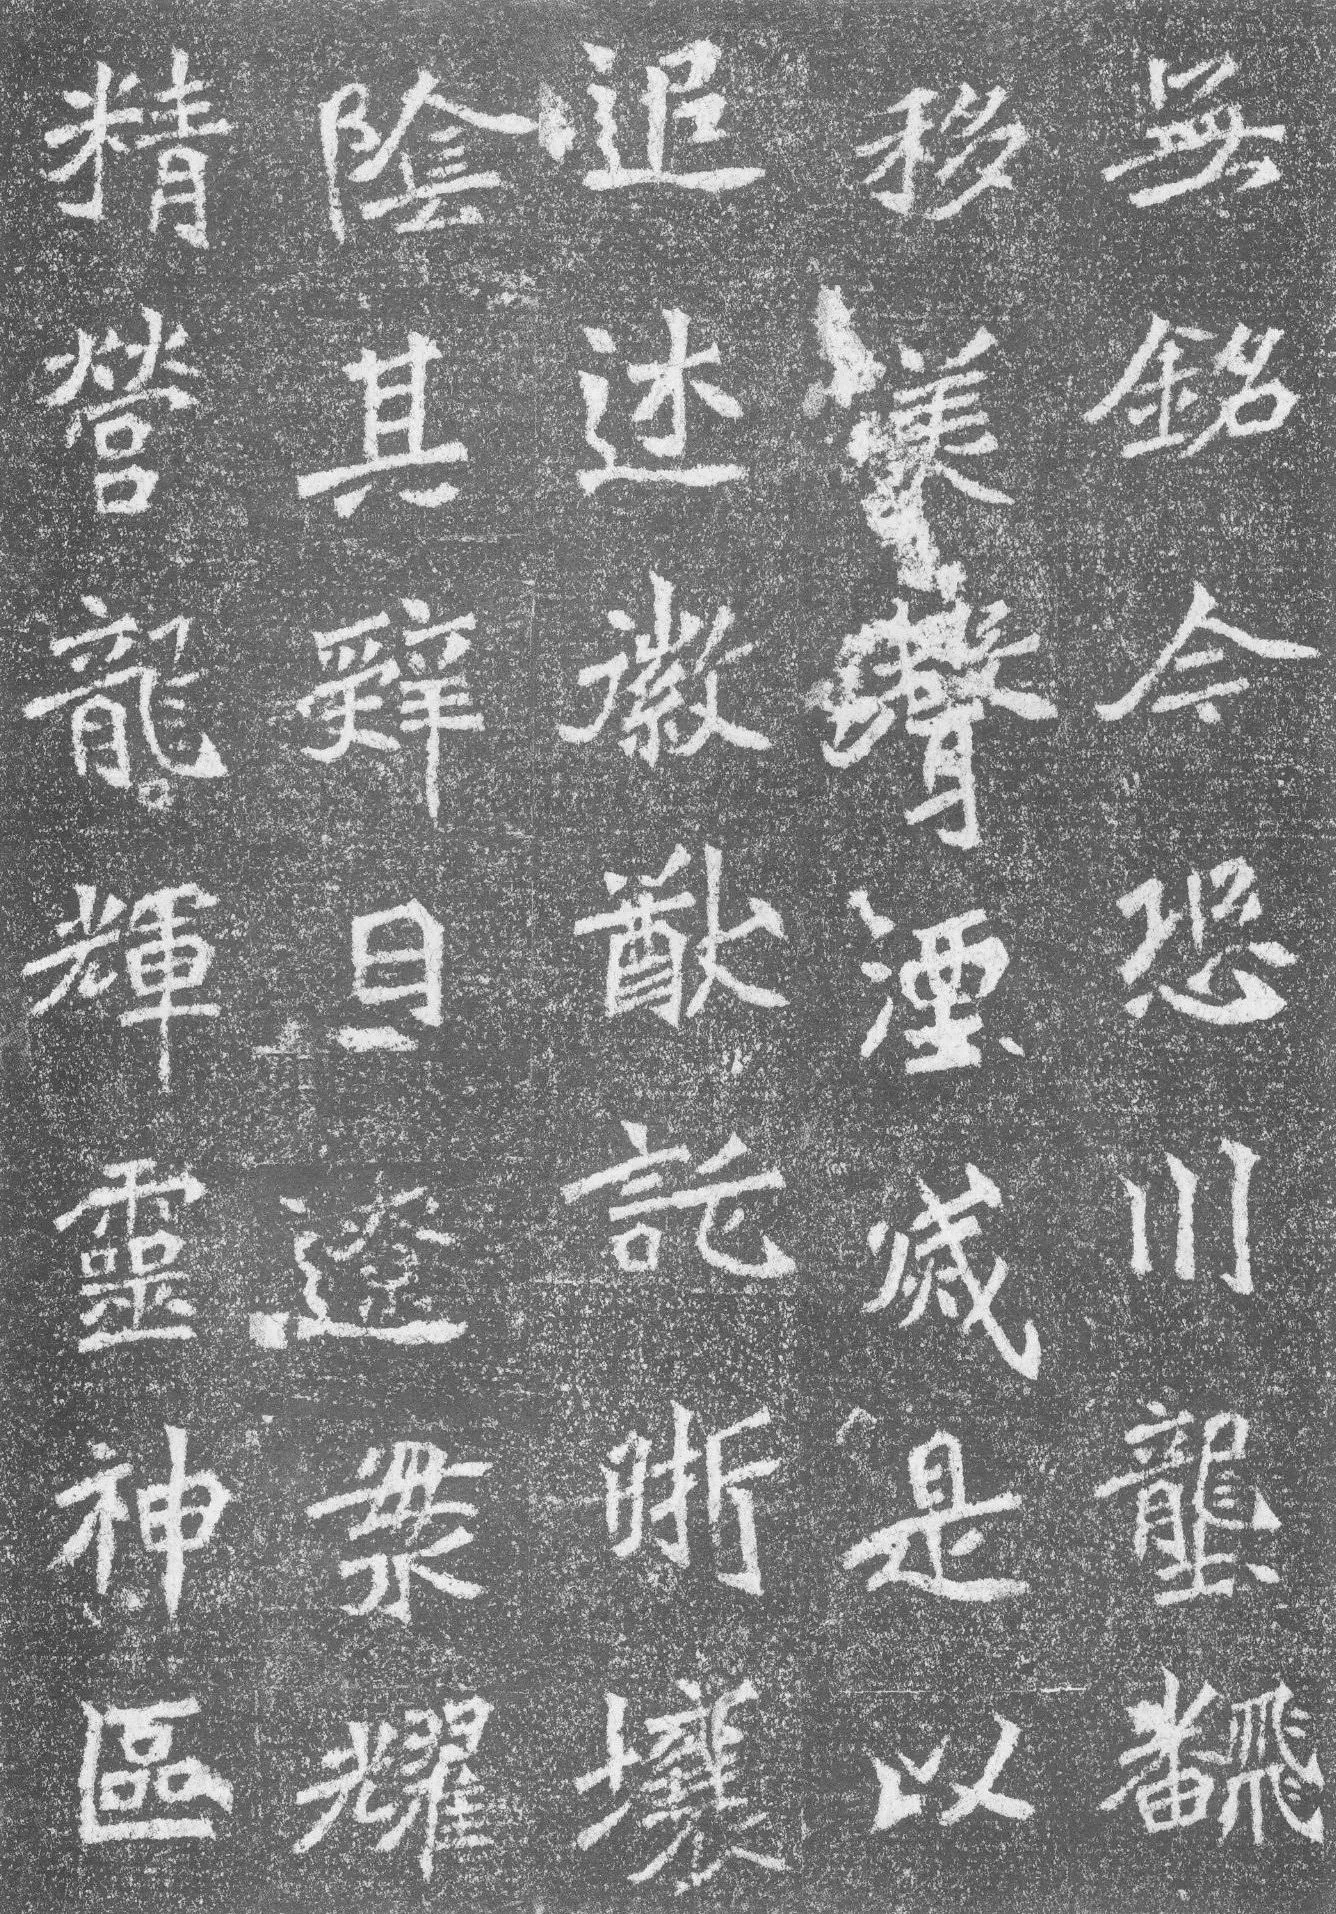 無銘今恐川壟飜
移美聲湮滅是以
追述徽猷託晰壤
陰其辭曰遼衆耀
精營龍輝靈神區